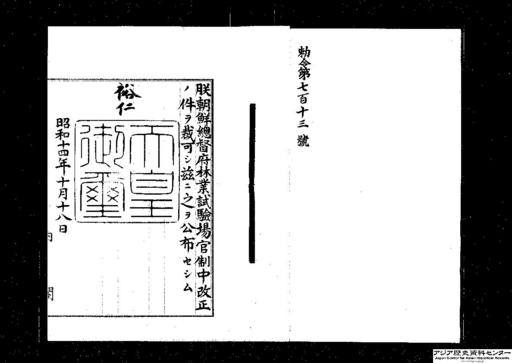 勅令第七百十三號
朕朝鮮總督府林業試驗場官制中改正
ノ件ヲ裁可シ茲ニ之ヲ公布セシム
裕仁
天皇御璽
昭和十四年十月十八日
内閣
アジア歴史資料センター
Japan Center for Asian Historical Records